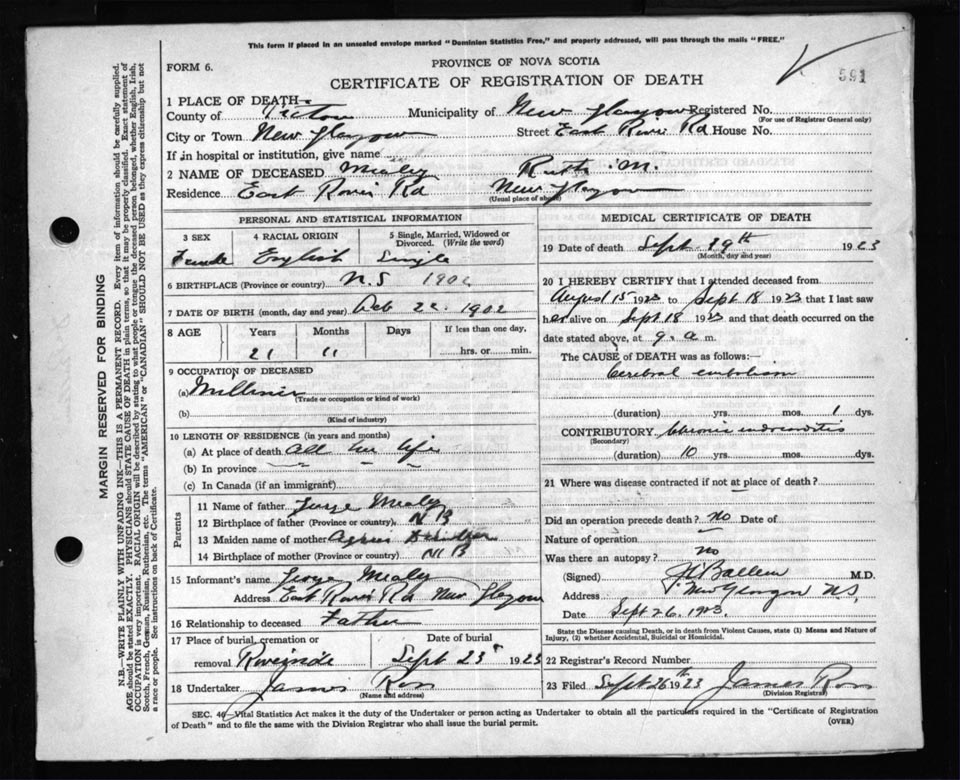 This form if placed in an unsealed envelope marked "Dominion Statistics Free," and properly addressed, will pass through the mails "FREE."
FORM 6.
PROVINCE OF NOVA SCOTIA
591
CERTIFICATE OF REGISTRATION OF DEATH
1 PLACE OF DEATH—
County of Pictou Municipality of New Glasgow Registered No.
(For use of Registrar General only)
City or Town New Glasgow Street East River Rd House No.
If in hospital or institution, give name
2 NAME OF DECEASED Mealy Ruth M.
Residence East River Rd New Glasgow
(Usual place of abode)
PERSONAL AND STATISTICAL INFORMATION
3 SEX 4 RACIAL ORIGIN 5 Single, Married, Widowed or Divorced. (Write the word)
Female English Single
6 BIRTHPLACE (Province or country) N.S 1902
7 DATE OF BIRTH (month, day and year) 22 1902
8 AGE Years Months Days If less than one day,
21 11 hrs. or min.
9 OCCUPATION OF DECEASED
(a) Milliner
(Trade or occupation or kind of work)
(b)
(Kind of industry)
10 LENGTH OF RESIDENCE (in years and months)
(a) At place of death All her life
(b) In province " " "
(c) In Canada (if an immigrant)
Parents
11 Name of father George Mealy
12 Birthplace of father (Province or country) N B
13 Maiden name of mother Agnes
14 Birthplace of mother (Province or country) N B
15 Informant's name George Mealy
Address East River Rd New Glasgow
16 Relationship to deceased Father
17 Place of burial, cremation or removal Date of burial
Riverside Sept 23 1923
18 Undertaker James Ross
(Name and address)
MEDICAL CERTIFICATE OF DEATH
19 Date of death Sept. 19th 1923
(Month, day and year)
20 I HEREBY CERTIFY that I attended deceased from
August 15 1923 to Sept 18 1923 that I last saw
her alive on Sept 18 1923 and that death occurred on
date stated above, at 9. a m.
The CAUSE of DEATH was as follows:—
Cerebral embolism
(duration) yrs. mos. 1 dys.
CONTRIBUTORY Chronic endocarditis
(Secondary)
(duration) 10 yrs. mos. dys.
21 Where was disease contracted if not at place of death?
Did an operation precede death? no Date of
Nature of operation
Was there an autopsy? no
(Signed) M.D.
Address New Glasgow N.S.
Date Sept 26. 1923.
State the Disease causing Death, or in death from Violent Causes, state (1) Means and Nature of
Injury, (2) whether Accidental, Suicidal or Homicidal.
22 Registrar's Record Number
23 Filed Sept 26th 1923 James Ross
(Division Registrar)
SEC. 40—Vital Statistics Act makes it the duty of the Undertaker or person acting as Undertaker to obtain all the particulars required in the "Certificate of Registration
of Death" and to file the same with the Division Registrar who shall issue the burial permit. (OVER)
MARGIN RESERVED FOR BINDING
N.B.—WRITE PLAINLY WITH UNFADING INK—THIS IS A PERMANENT RECORD. Every item of information should be carefully supplied.
AGE should be stated EXACTLY. PHYSICIANS should STATE CAUSE OF DEATH in plain terms, so that it may be properly classified. Exact statement of
OCCUPATION is very important. RACIAL ORIGIN will be described by stating to what people or tongue the deceased person belonged, whether English, Irish,
Scotch, French, German, Russian, Ruthenian, etc. The terms "AMERICAN" or "CANADIAN" SHOULD NOT BE USED as they express citizenship but not
a race or people. See instructions on back of Certificate.